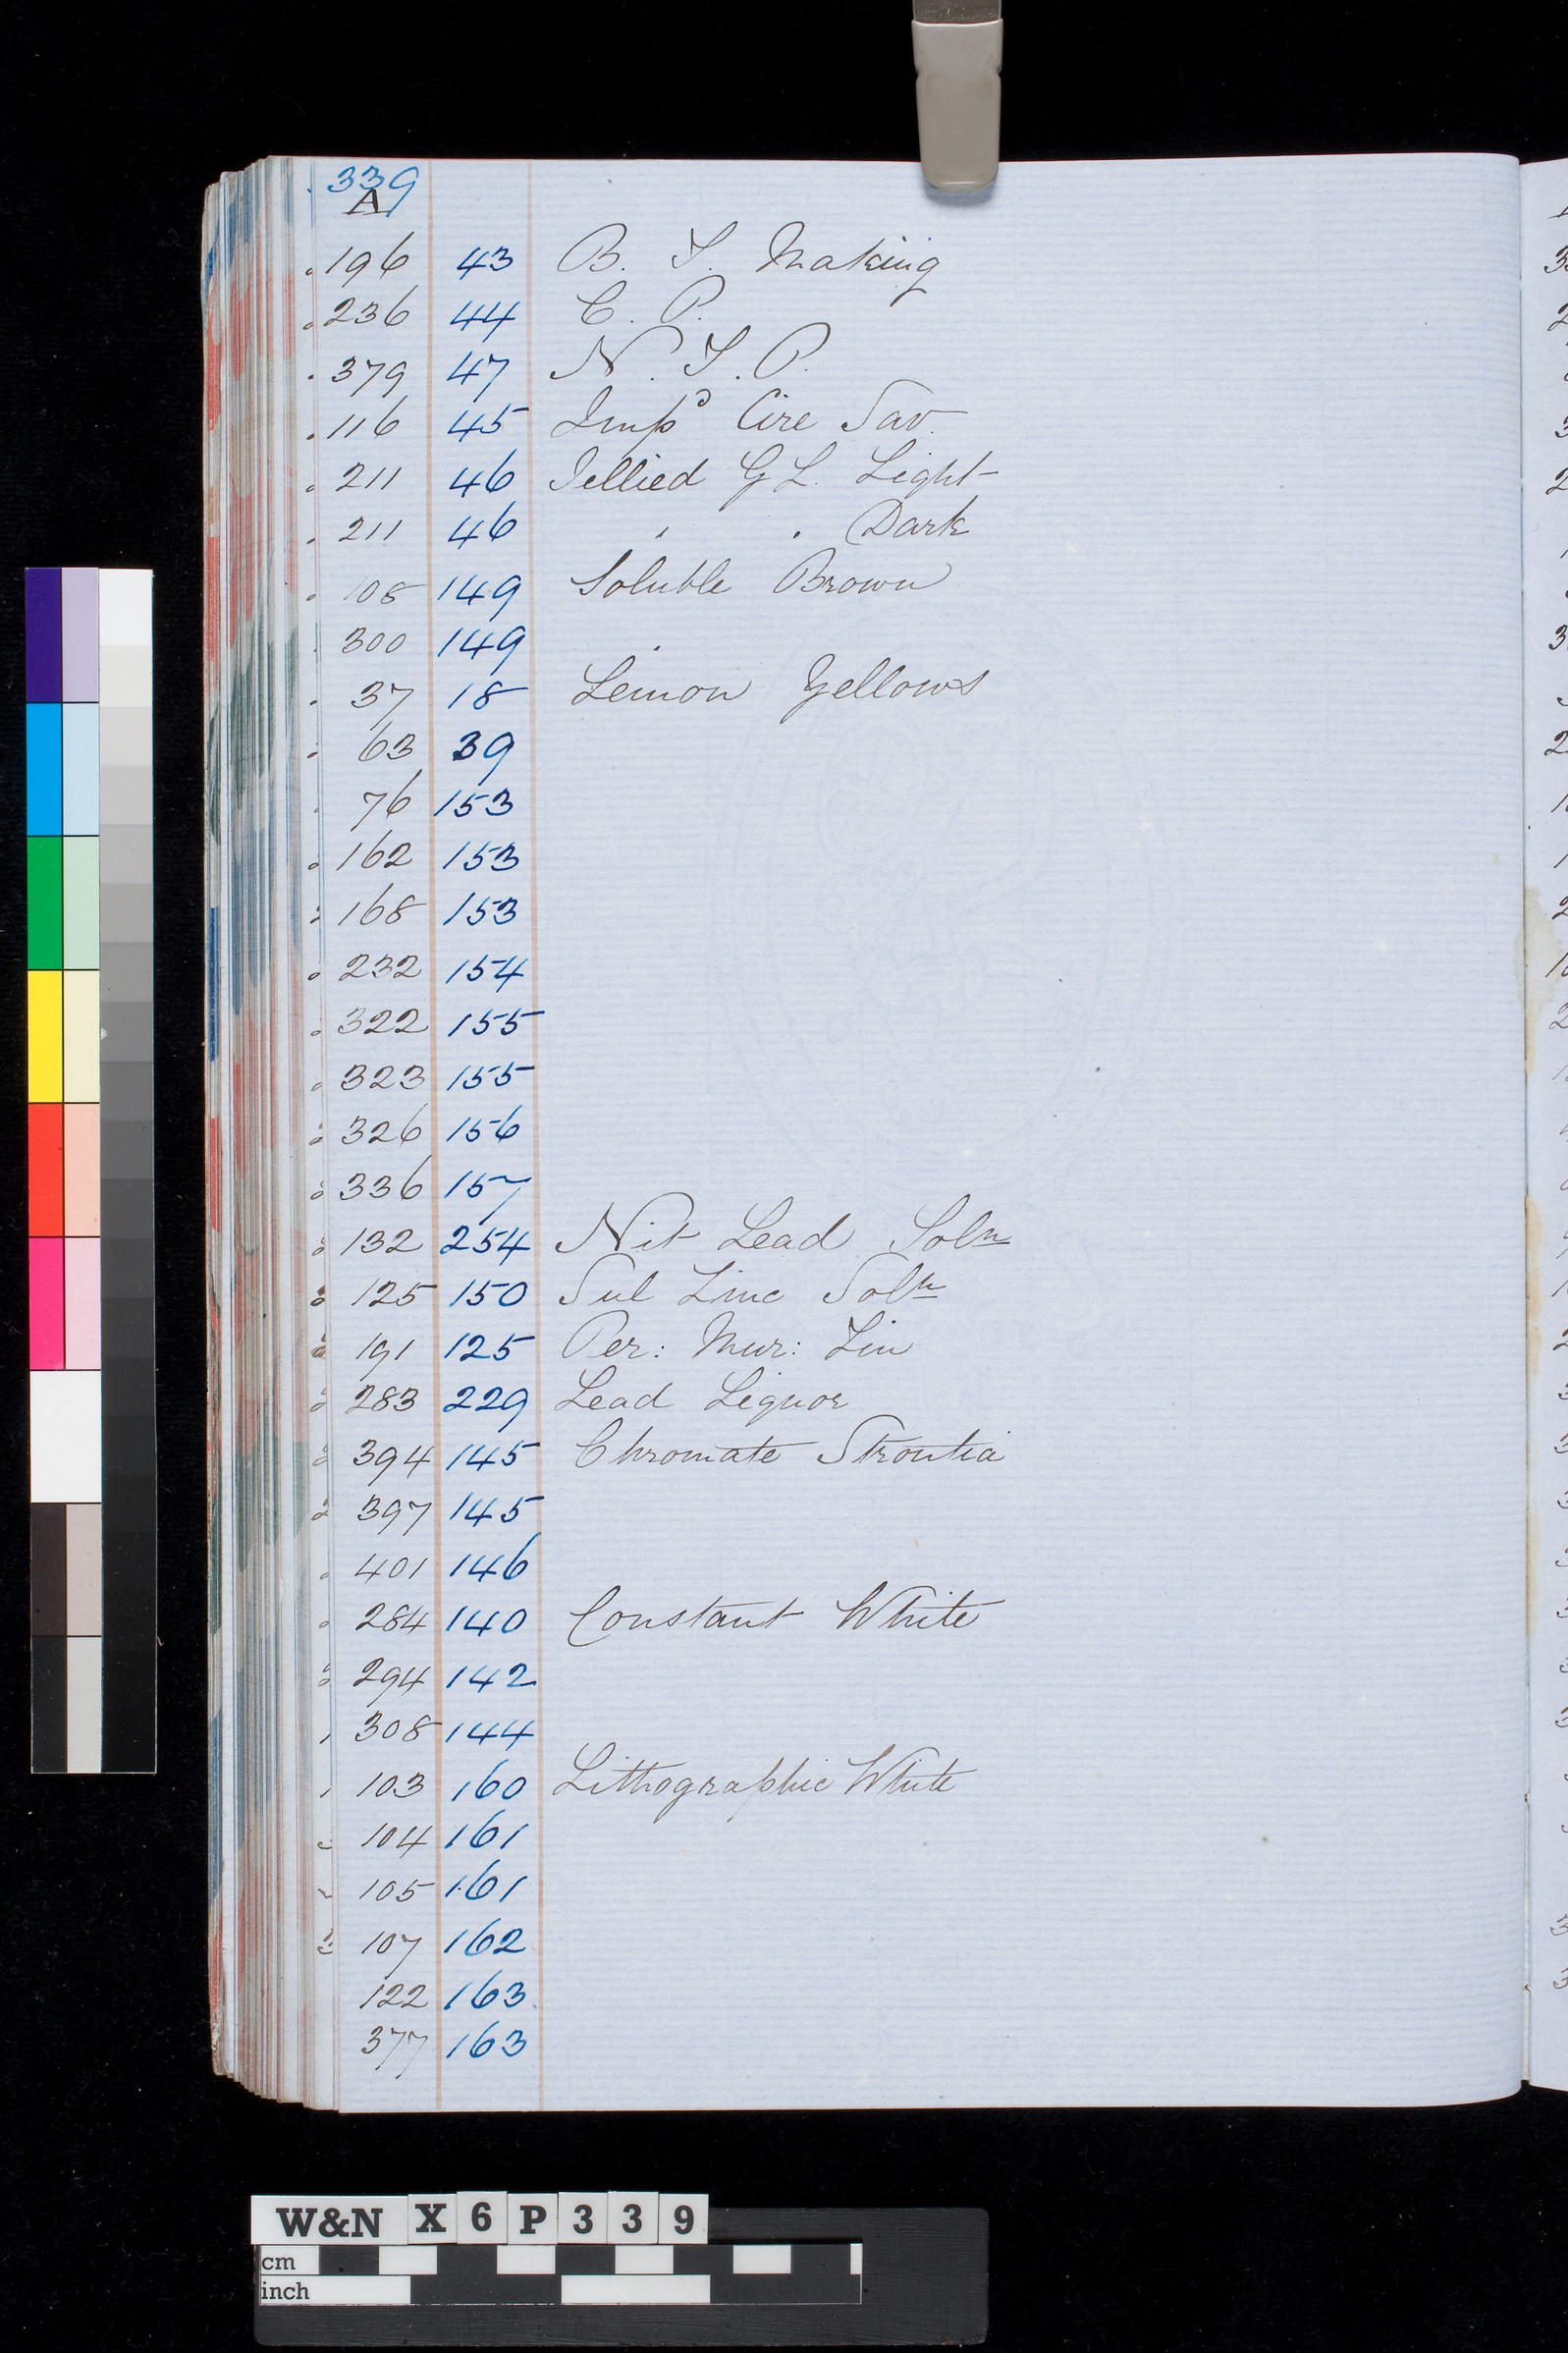 339
A
196 43 B. S. Making
236 44 C. P.
379 47 N. S. P.
116 45 Imp^d Cire Sav.
211 46 Jellied G L. Light
211 46 " " Dark
108 149 Soluble Brown
300 149 "
37 18 Lemon Yellows
63 39
76 153
162 153
168 153
232 154
322 155
323 155
326 156
336 157
132 254 Nit Lead Sol^n
125 150 Sul Zinc Sol^n
191 125 Per: Mur: Tin
283 229 Lead Liquor
394 145 Chromate Strontia
397 145
401 146
284 140 Constant White
294 142
308 144
103 160 Lithographic White
104 161
105 161
107 162
122 163
377 163
W&N X 6 P 3 3 9
cm
inch